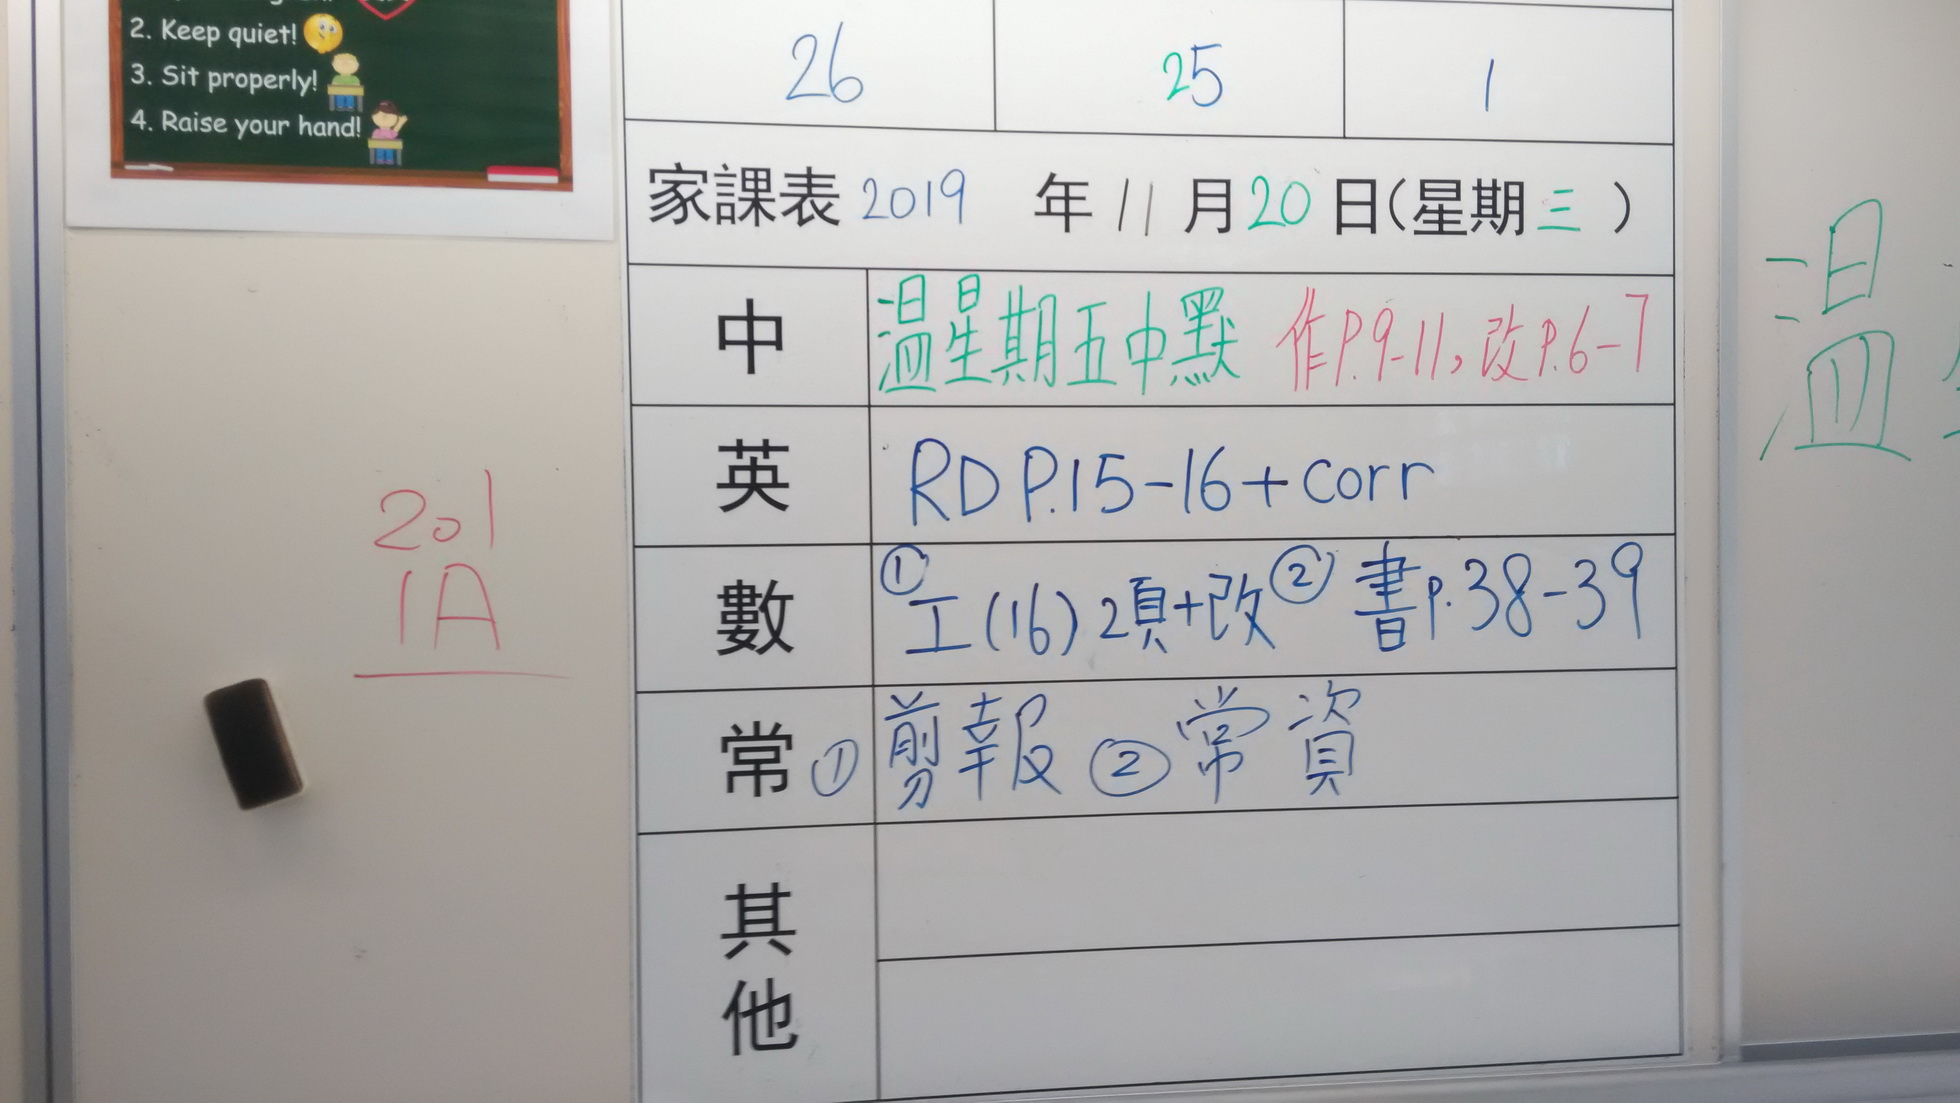 2. Keep quiet!
3. Sit properly!
4. Raise your hand!
26 25 1
家課表 2019 年 11 月 20 日(星期三)
中 溫星期五中默 作P.9-11,改P.6-7
英 RD P.15-16+corr
數 ①工(16)2頁+改 ②書p.38-39
常 ①剪報 ②常資
其他
201
1A
溫